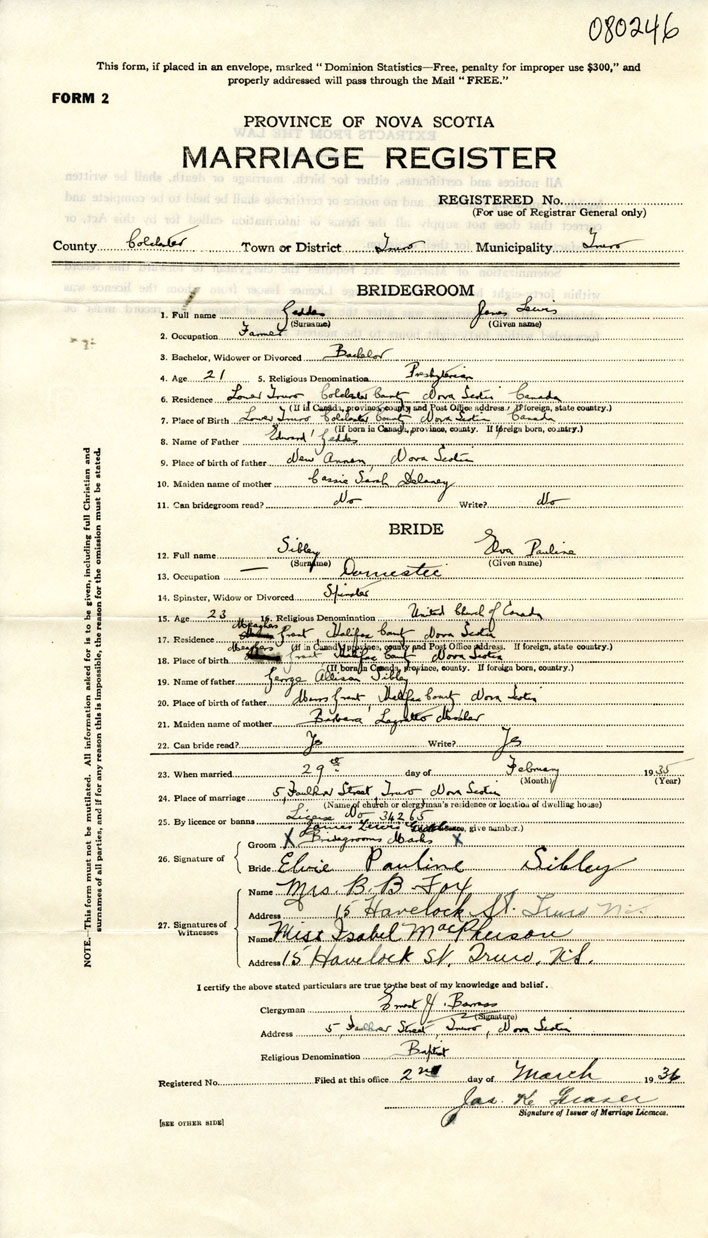 080246
This form, if placed in an envelope, marked " Dominion Statistics—Free, penalty for improper use $300," and
properly addressed will pass through the Mail " FREE."
FORM 2
PROVINCE OF NOVA SCOTIA
MARRIAGE REGISTER
REGISTERED No.
(For use of Registrar General only)
County Colchester Town or District Truro Municipality Truro
BRIDEGROOM
1. Full name Geddes James Lewis
(Surname) (Given name)
2. Occupation Farmer
3. Bachelor, Widower or Divorced Bachelor
4. Age 21 5. Religious Denomination Presbyterian
6. Residence Lower Truro Colchester County Nova Scotia Canada
(If in Canada, province, county and Post Office address. If foreign, state country.)
7. Place of Birth Lower Truro Colchester County Nova Scotia Canada
(If born in Canada, province, county. If foreign born, country.)
8. Name of Father Edward Geddes
9. Place of birth of father New Annan, Nova Scotia
10. Maiden name of mother Cassie Sarah Delaney
11. Can bridegroom read? No Write? No
BRIDE
12. Full name Sibley Elva Pauline
(Surname) (Given name)
13. Occupation — Domestic
14. Spinster, Widow or Divorced Spinster
15. Age 23 16. Religious Denomination United Church of Canada
17. Residence Meaghers Grant Halifax County Nova Scotia
(If in Canada, province, county and Post Office address. If foreign, state country.)
18. Place of birth Meaghers Grant Halifax County Nova Scotia
(If born in Canada, province, county. If foreign born, country.)
19. Name of father George Allison Sibley
20. Place of birth of father Grant Halifax County Nova Scotia
21. Maiden name of mother Barbara
22. Can bride read? Yes Write? Yes
23. When married 29th day of February 1935
(Month) (Year)
24. Place of marriage 5, Faulkner Street Truro Nova Scotia
(Name of church or clergyman's residence or location of dwelling house)
25. By licence or banns License No 34265
(If by licence, give number.)
James Lewis Geddes
26. Signature of Groom X Bridegrooms Marks X
Bride Elvie Pauline Sibley
27. Signatures of Witnesses
Name Mrs B B Fox
Address 15 Havelock St. Truro N.S.
Name Miss Isabel MacPherson
Address 15 Havelock St, Truro, N.S.
I certify the above stated particulars are true to the best of my knowledge and belief.
Clergyman Ernest J. Barrass
(Signature)
Address 5, Faulkner Street, Truro, Nova Scotia
Religious Denomination Baptist
Registered No. Filed at this office 2nd day of March 1936
Jas. K. Fraser
Signature of Issuer of Marriage Licences.
[SEE OTHER SIDE]
NOTE. This form must not be mutilated. All information asked for is to be given, including full Christian and
surnames of all parties, and if for any reason this is impossible, the reason for the omission must be stated.